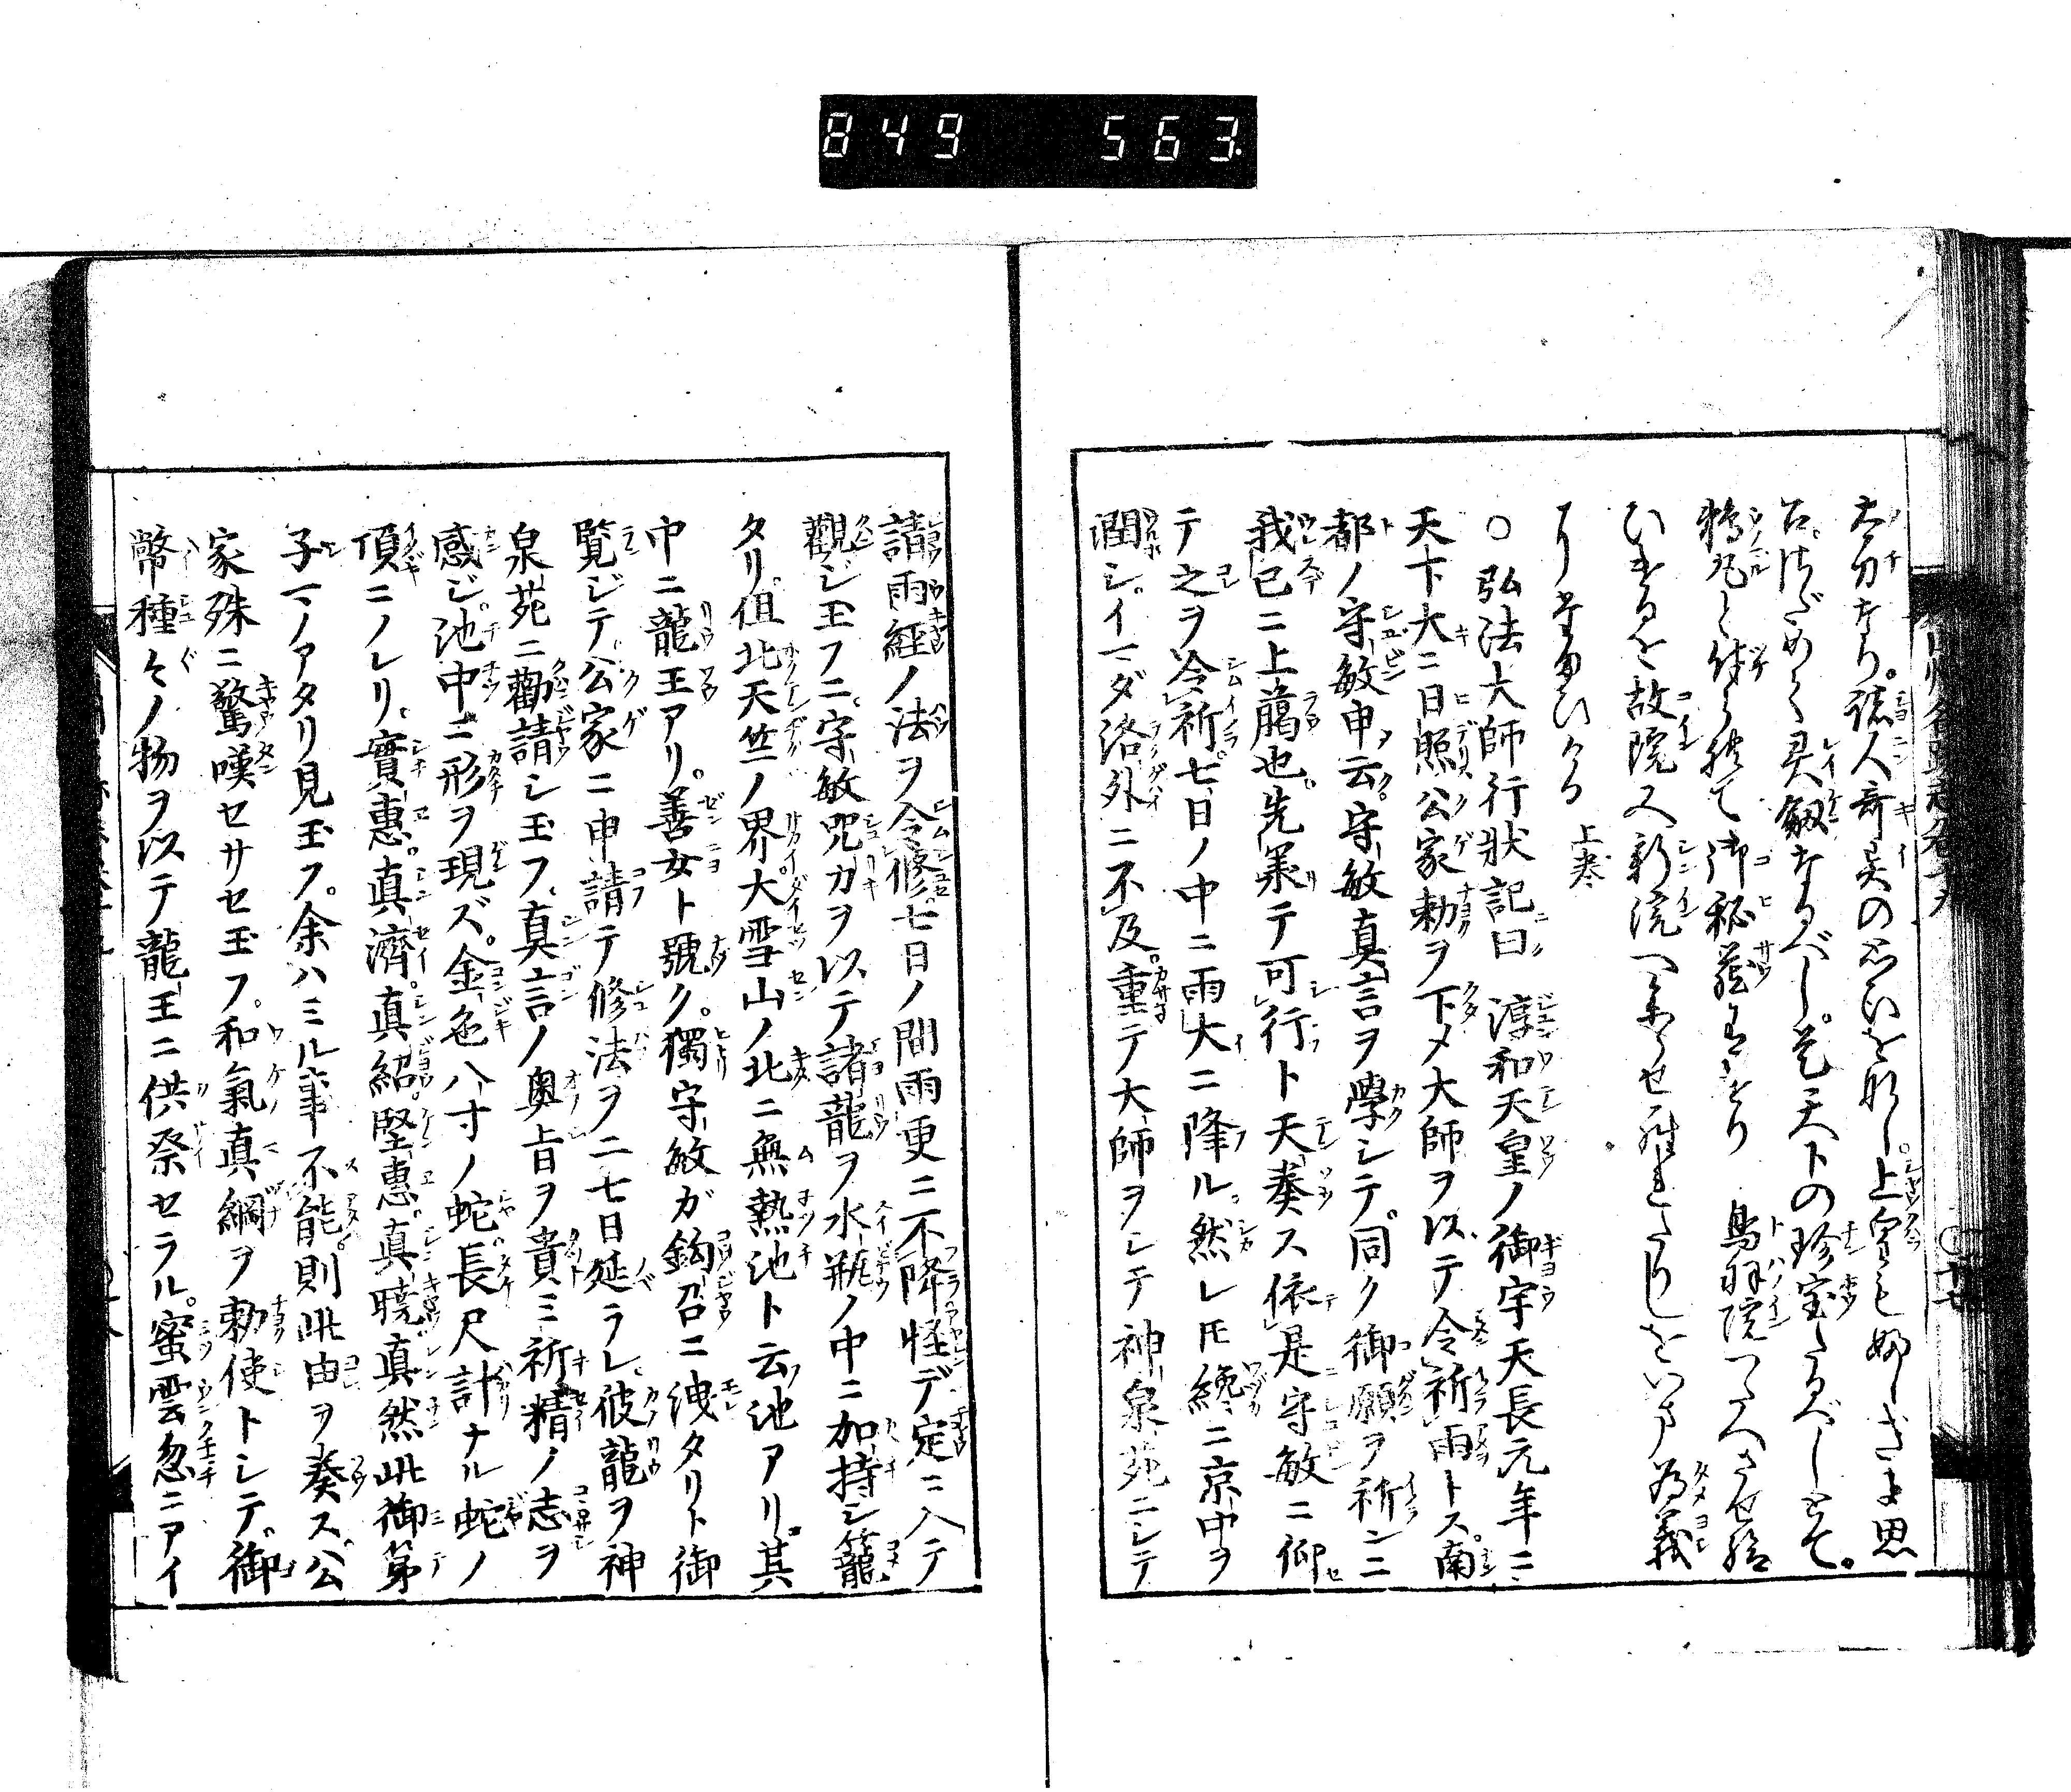 849 563.
太刀なり。諸人奇異の思ひを成し。上皇も妙しき事に思
召。はだめく灵劔なるべし。是天下の珍宝たるべしとて。
鵜丸と付られて御秘蔵ありけり 鳥羽院つたへさせ給
ひけるを故院又新院へまいらせ
上巻
○弘法大師行状記曰 淳和天皇ノ御宇天長元年ニ
天下大ニ日照公家勅ヲ下メ大師ヲ以テ令祈雨トス。南
都ノ守敏申云。守敏真言ヲ學シテ。同ク御願ヲ祈ンニ
我已ニ上﨟也。先𣴎テ可行ト天奏ス依是守敏ニ仰
テ之ヲ令祈。七日ノ中ニ雨大ニ降ル。然レ𪜈纔ニ京中ヲ
潤シ。イマダ洛外ニ不及。重テ大師ヲシテ神泉苑ニシテ
請雨経ノ法ヲ令修。七日ノ間雨更ニ不降怪デ定ニ入テ
觀シ玉フニ。守敏呪力ヲ以テ諸龍ヲ水瓶ノ中ニ加持シ籠
タリ。但北天竺ノ界大雪山ノ北ニ無熱池ト云池アリ。其
中ニ龍王アリ。善女ト號ク。獨守敏ガ鈎召ニ洩タリト御
覧ジテ。公家ニ申請テ修法ヲ二七日延ラレ彼龍ヲ神
泉苑ニ勸請シ玉フ。真言ノ奥旨ヲ貴ミ祈精ノ志ヲ
感ジ。池中ニ形ヲ現ズ。金色八寸ノ蛇。長尺計ナル蛇ノ
頂ニノレリ。實惠。真濟。真紹。堅惠。真暁。真然此御第
子マノアタリ見玉フ。余ハミル事不能。則此由ヲ奏ス。公
家殊ニ驚嘆セサセ玉フ。和氣真綱ヲ勅使トシテ。御
幣種々ノ物ヲ以テ龍王ニ供祭セラル。蜜雲忽ニアイ